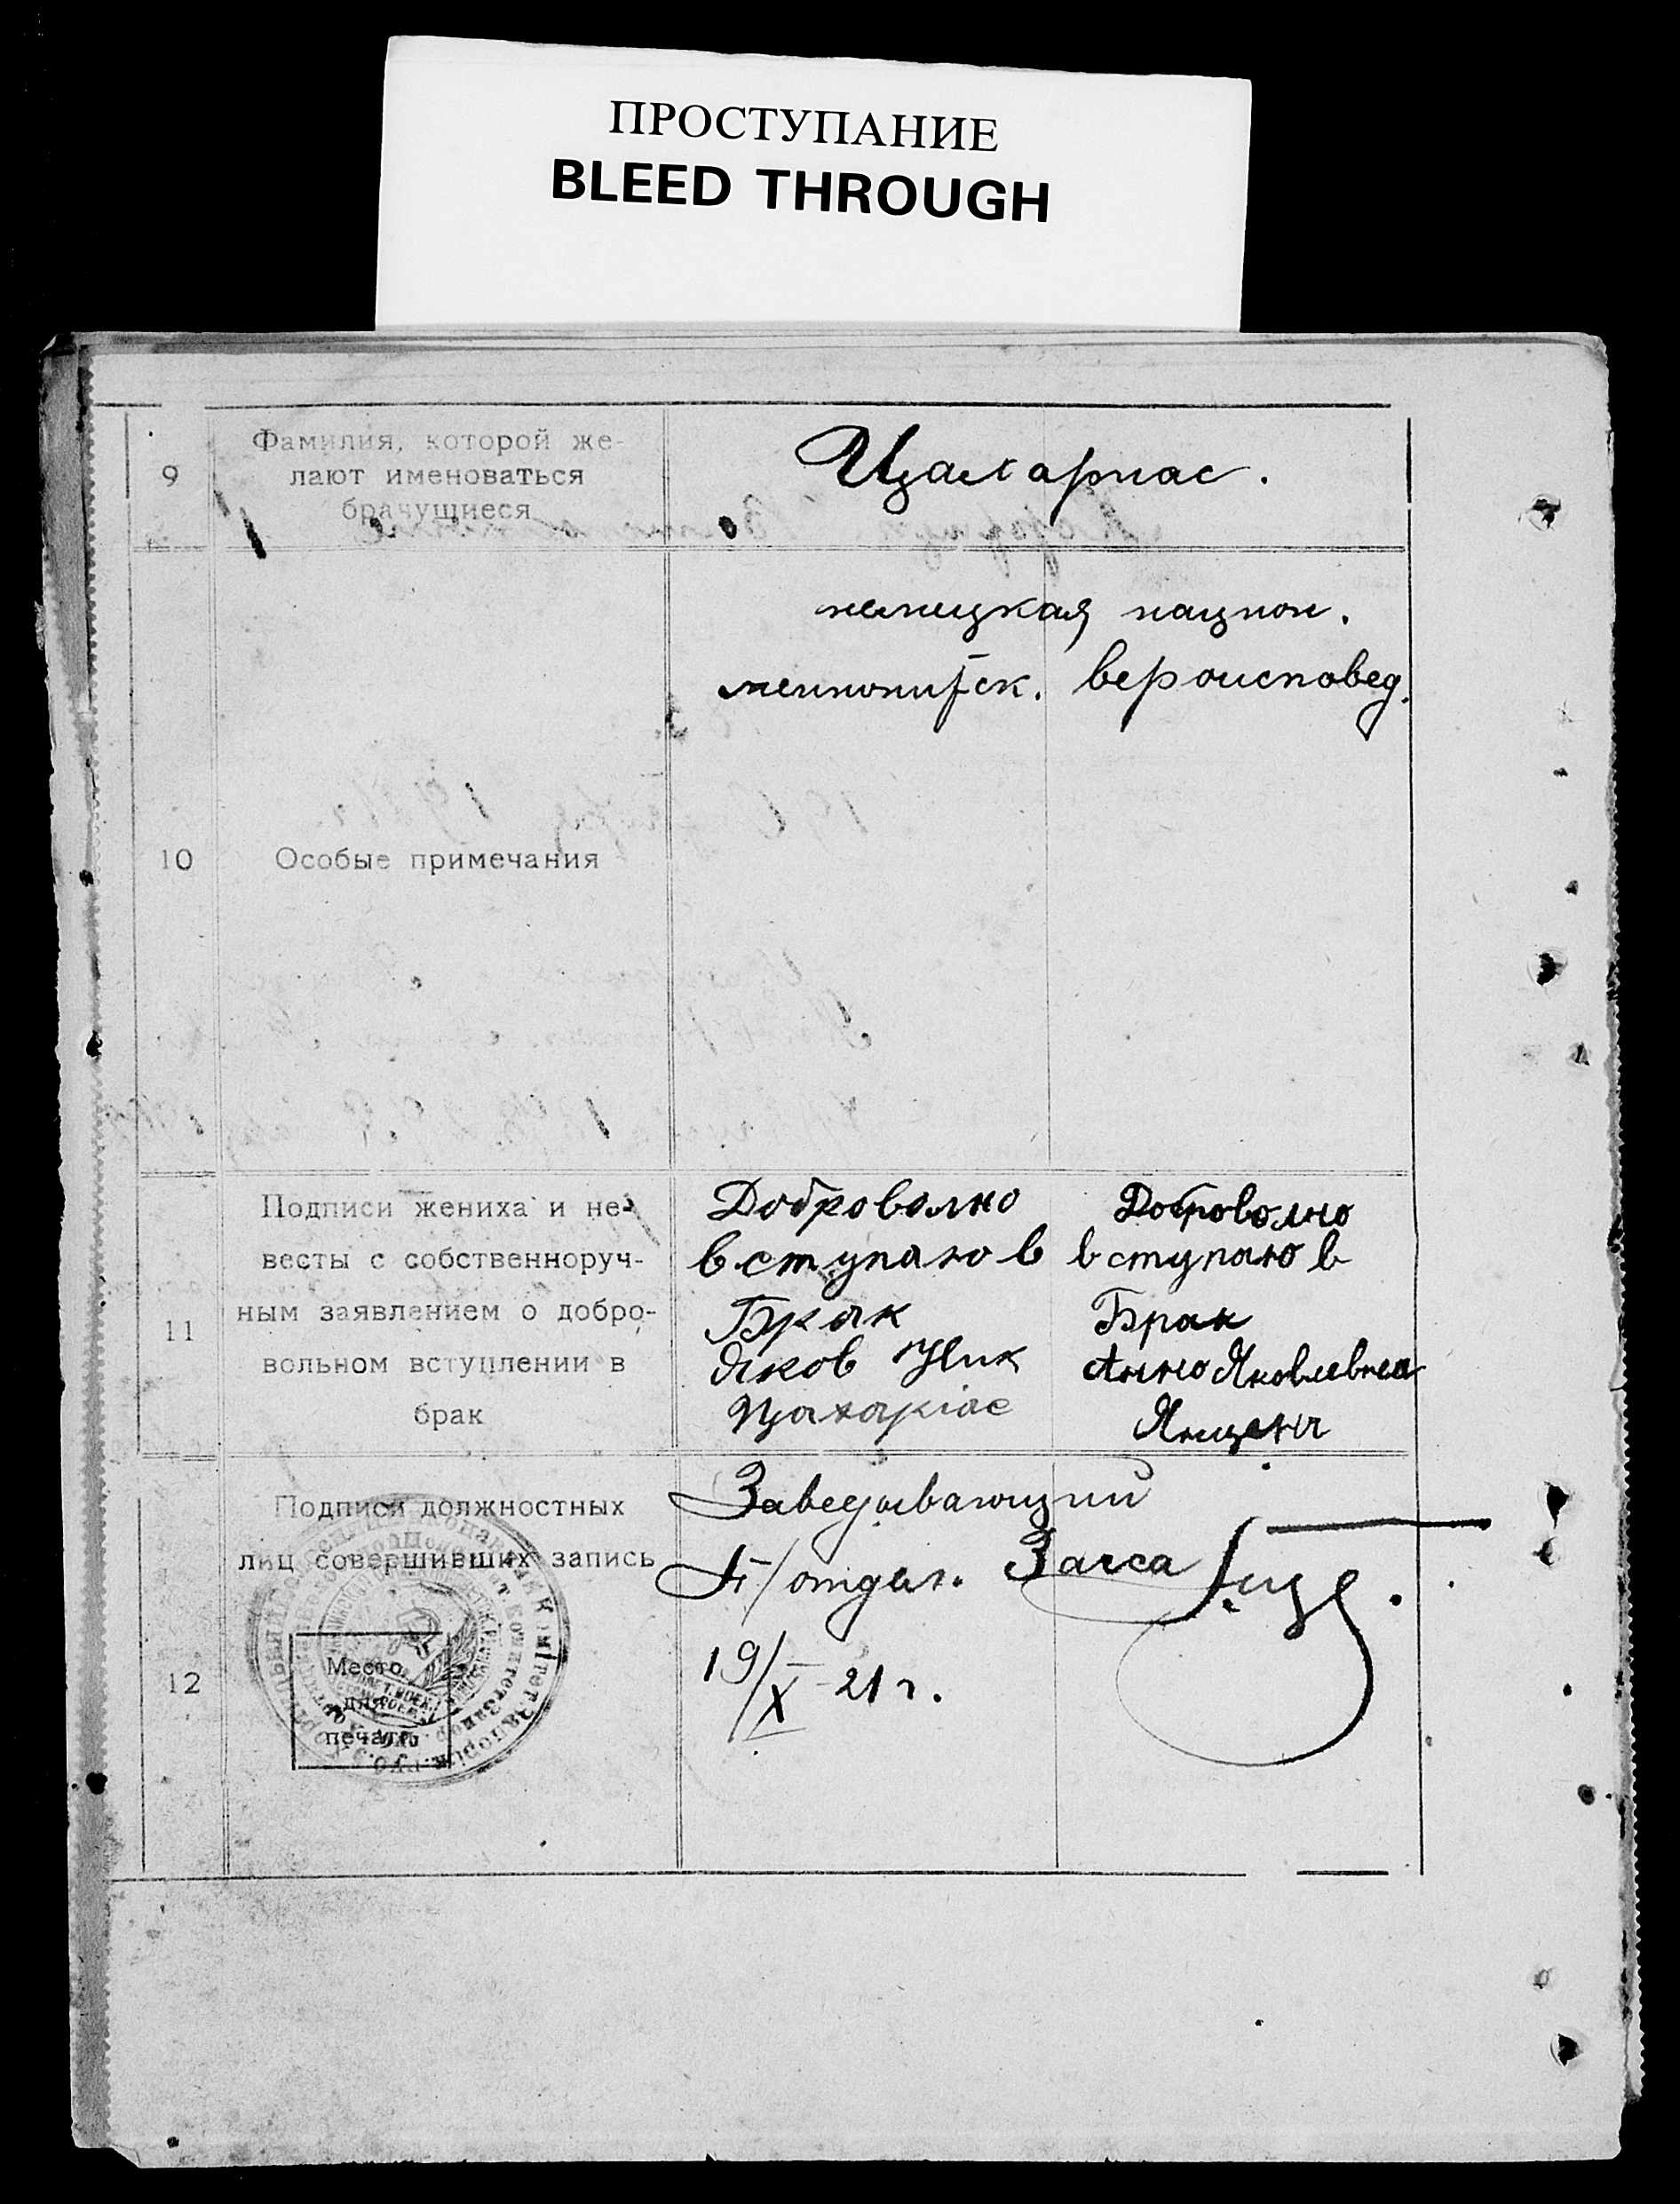 ПРОСТУПАНИЕ
BLEED THROUGH
9
Фамилия, которой же-
лают именоваться
брачущиеся
Цахариас.
немецкая национ.
меннонитск. вероисповед.
10
Особые примечания
11
Подписи жениха и не-
весты с собственноруч-
ным заявлением о добро-
вольном вступлении в
брак
Доброволно
вступаю в
Брак
Яков Ник
Цахаріас
Доброволно
вступаю в
Брак
Анна Яковлевна
Янцена
12
Подписи должностных
лиц совершивших запись
Место
для
печати
Заведывающий
П/отдел. Загса
19/X-21 г.